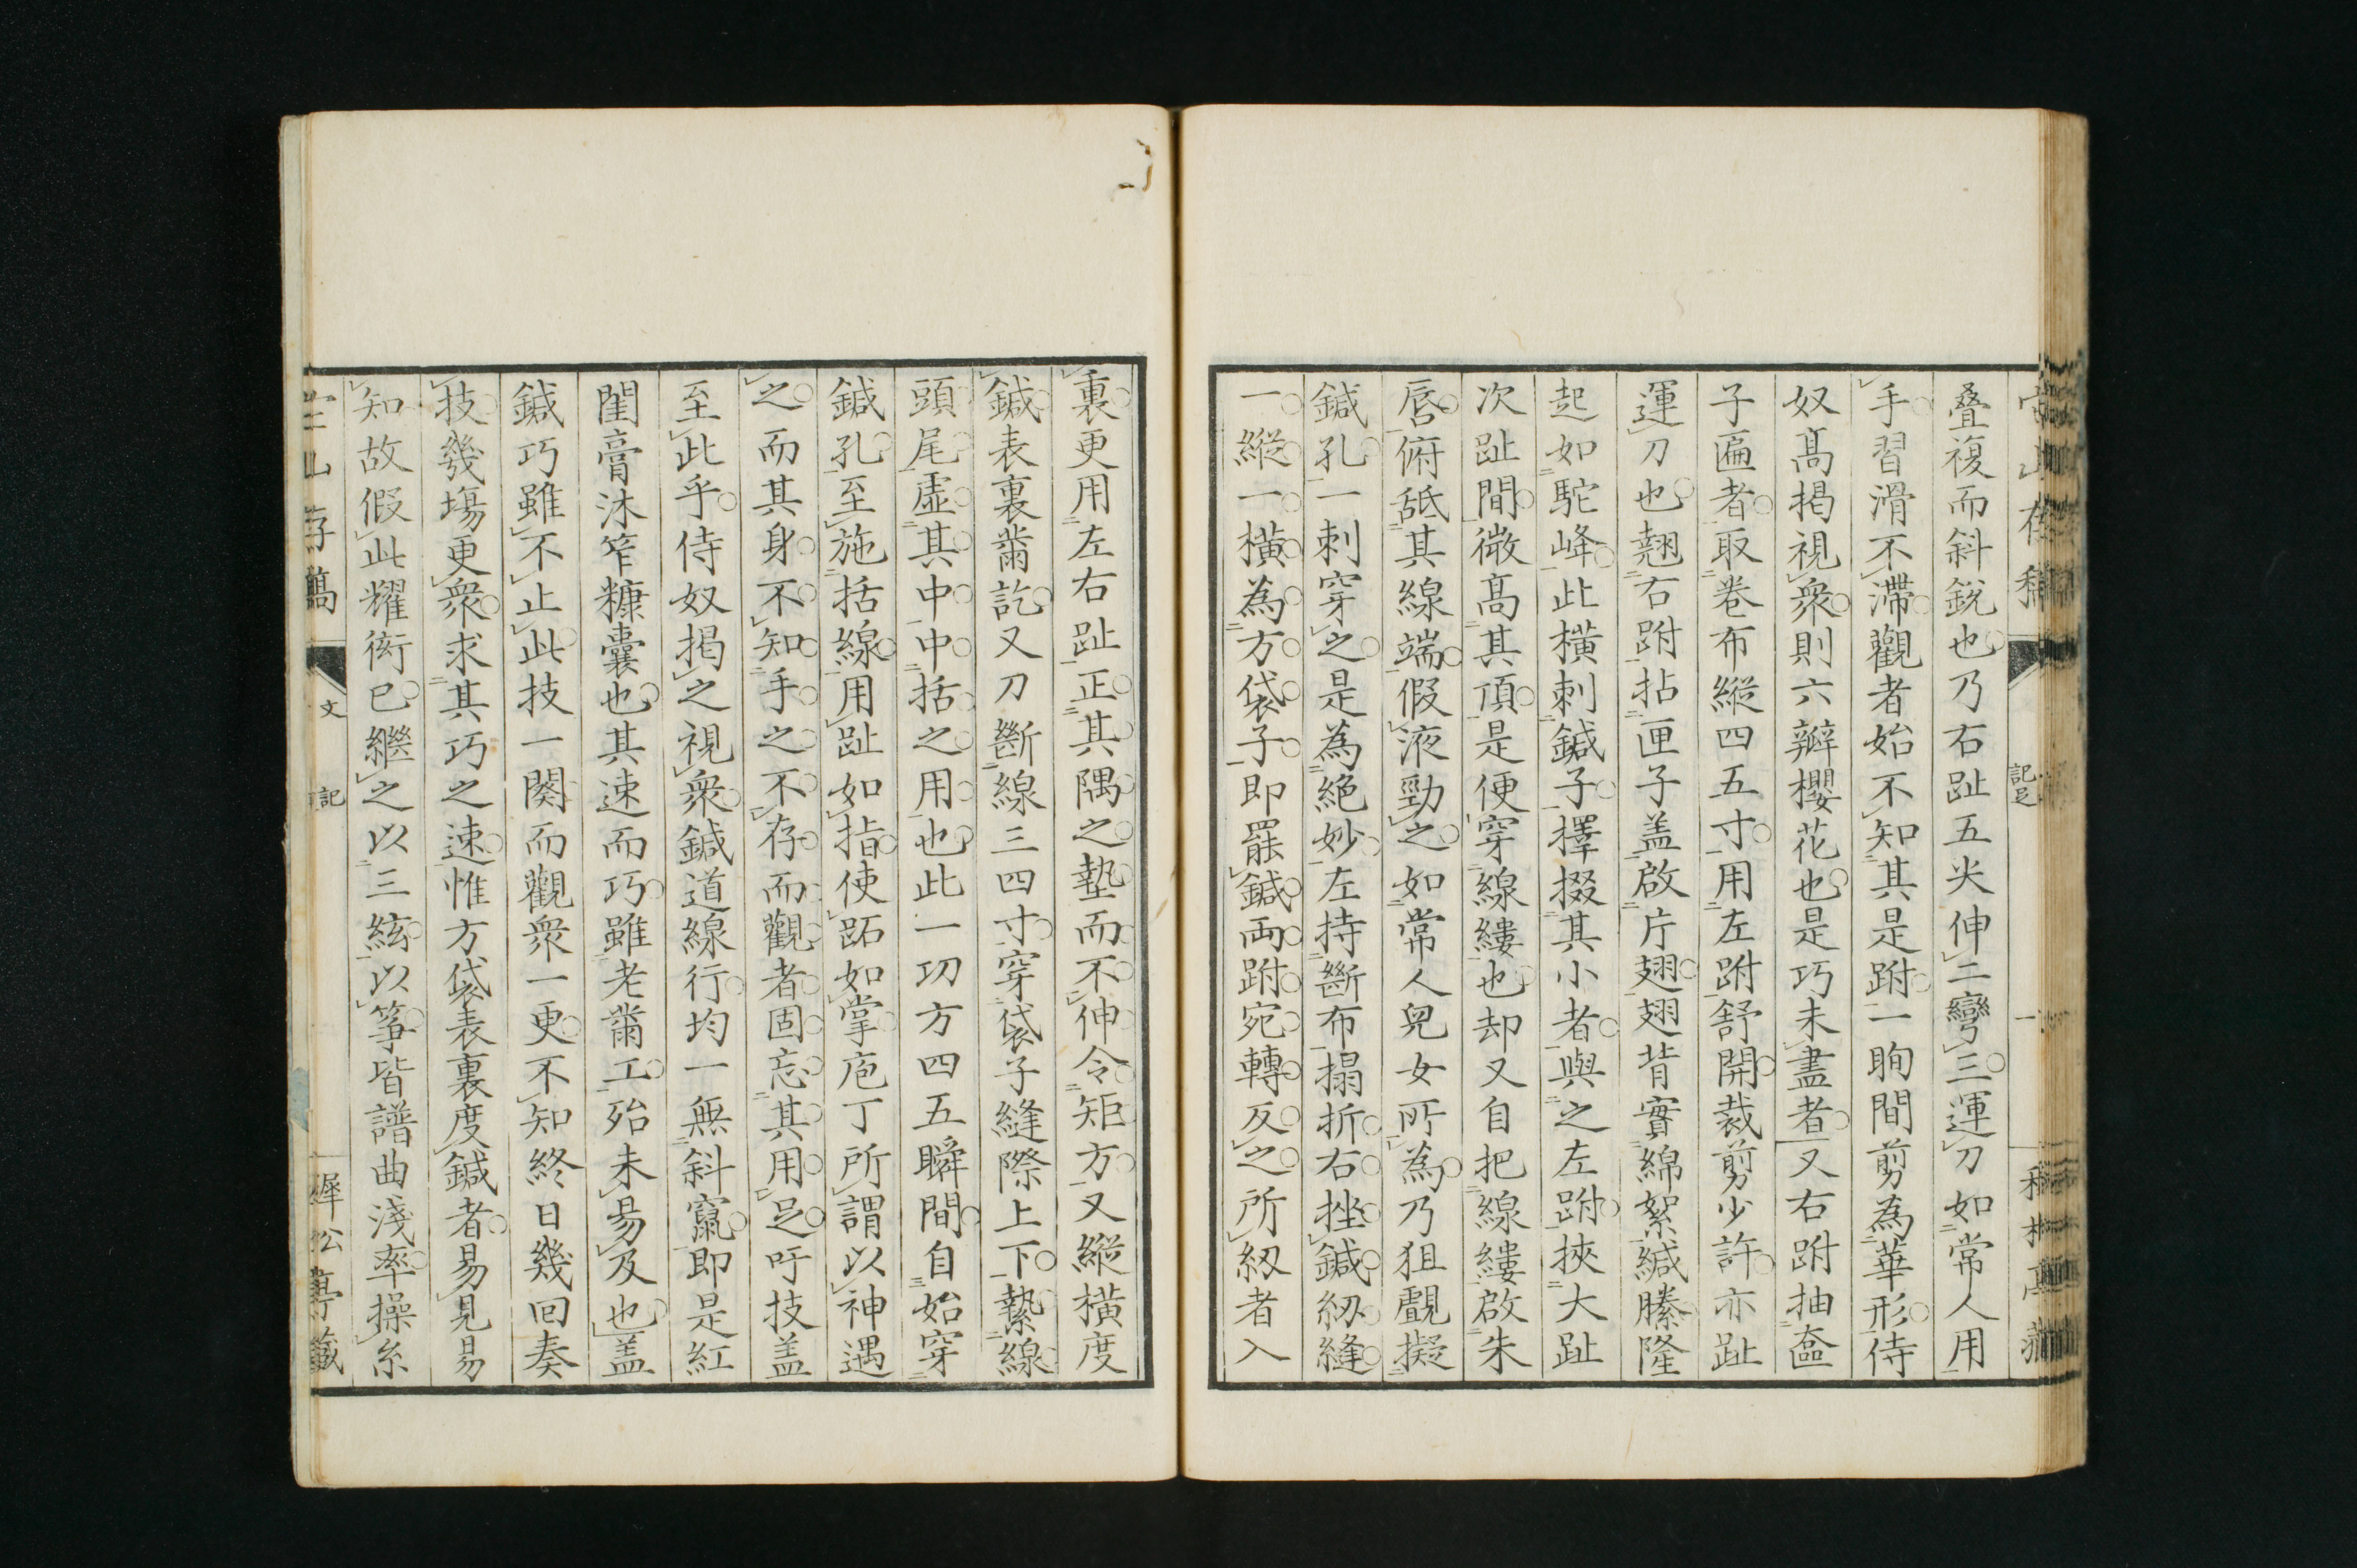 叠複而斜銳也乃右趾五尖伸二彎三運刀如常人用
手習滑不滯觀者始不知其是跗一眴間剪為華形侍
奴髙掲視衆則六瓣櫻花也是巧未盡者又右跗抽奩
子匾者取卷布縱四五寸用左跗舒開裁剪少許亦趾
運刀也翹右跗拈匣子盖啟片翅翅背實綿絮緘縢隆
起如駝峰此橫刺鍼子擇掇其小者與之左跗挾大趾
次趾間微髙其頂是便穿線縷也却又自把線縷啟朱
唇俯舐其線端假液勁之如常人兒女所為乃狙覷擬
鍼孔一刺穿之是為絕妙左持斷布搨折右挫鍼紉縫
一縱一橫為方袋子即罷鍼両跗宛轉反之所紉者入
裏更用左右趾正其隅之墊而不伸令矩方又縱橫度
鍼表裏黹訖又刀斷線三四寸穿袋子縫際上下縶線
頭尾虛其中中括之用也此一切方四五瞬間自始穿
鍼孔至施括線用趾如指使跖如掌庖丁所謂以神遇
之而其身不知手之不存而觀者固忘其用足吁技盖
至此乎侍奴掲之視衆鍼道線行均一無斜竄即是紅
閨膏沐笮糠囊也其速而巧雖老黹工殆未易及也盖
鍼巧雖不止此技一闋而觀衆一更不知終日幾回奏
技幾塲更衆求其巧之速惟方袋表裏度鍼者易見易
知故假此耀衒已繼之以三絃以箏皆譜曲淺率操糸
文
記